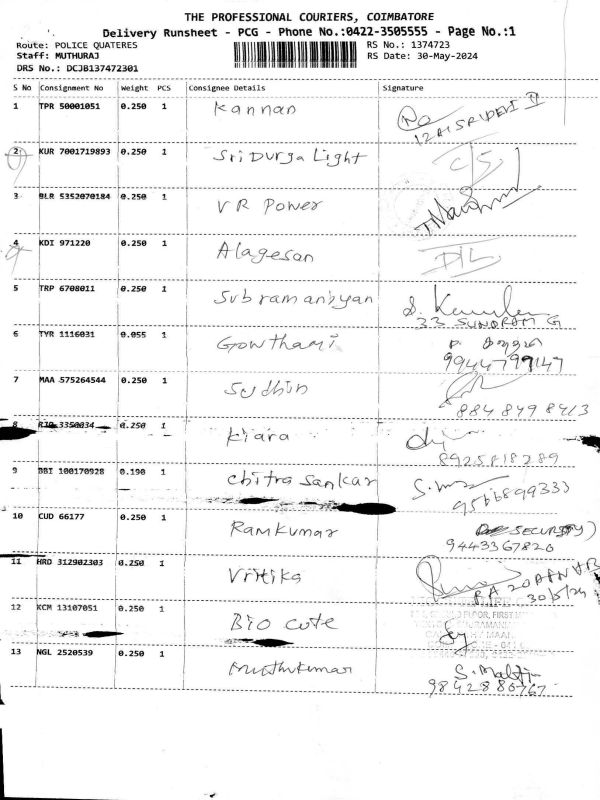 THE PROFESSIONAL COURIERS, COIMBATORE
Delivery Runsheet - PCG - Phone No.:0422-3505555 - Page No.:1
Route: POLICE QUATERES
RS No.: 1374723
Staff: MUTHURAJ
RS Date: 30-May-2024
DRS No.: DCJB137472301
S No Consignment No Weight PCS Consignee Details Signature
1 TPR 50001051 0.250 1 Kannan
12A1 SRIDEVI
2 KUR 7001719893 0.250 1 Sri Durga Light
3 BLR 5352070184 0.250 1 VR Power
4 KDI 971220 0.250 1 Alagesan
D/L
5 TRP 6708011 0.250 1 Subramaniyan
33 SUNDRAM G
6 TYR 1116031 0.055 1 Gowthami
9944799147
7 MAA 575264544 0.250 1 Sudhin
884 849 8413
8 3350034 0.250 1 Kiara
8925818289
9 BBI 100170928 0.190 1 Chitra Sankar
9566899333
10 CUD 66177 0.250 1 Ramkumar
SECURITY)
9443367820
11 HRD 312902303 0.250 1 Vritika
30/5/24
12 KCM 13107051 0.250 1 Bio cute
13 NGL 2520539 0.250 1 Muthukumar
9842880767